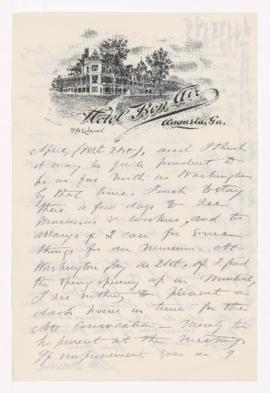 Hotel Bon Air
Augusta, Ga.
April, (10th 21st), and I think
it may be quite prudent to
be as far North as Washington
by that time. I wish to stay
there a few days to see
Museums & workers, and to
arrange if I can for some
things for our Museum. At
Washington say on 21st, if I find
the spring opening up in Montreal,
I see nothing to prevent a
dash home in time for the
Convocation — merely to
be present at the meeting.
If improvement goes on I